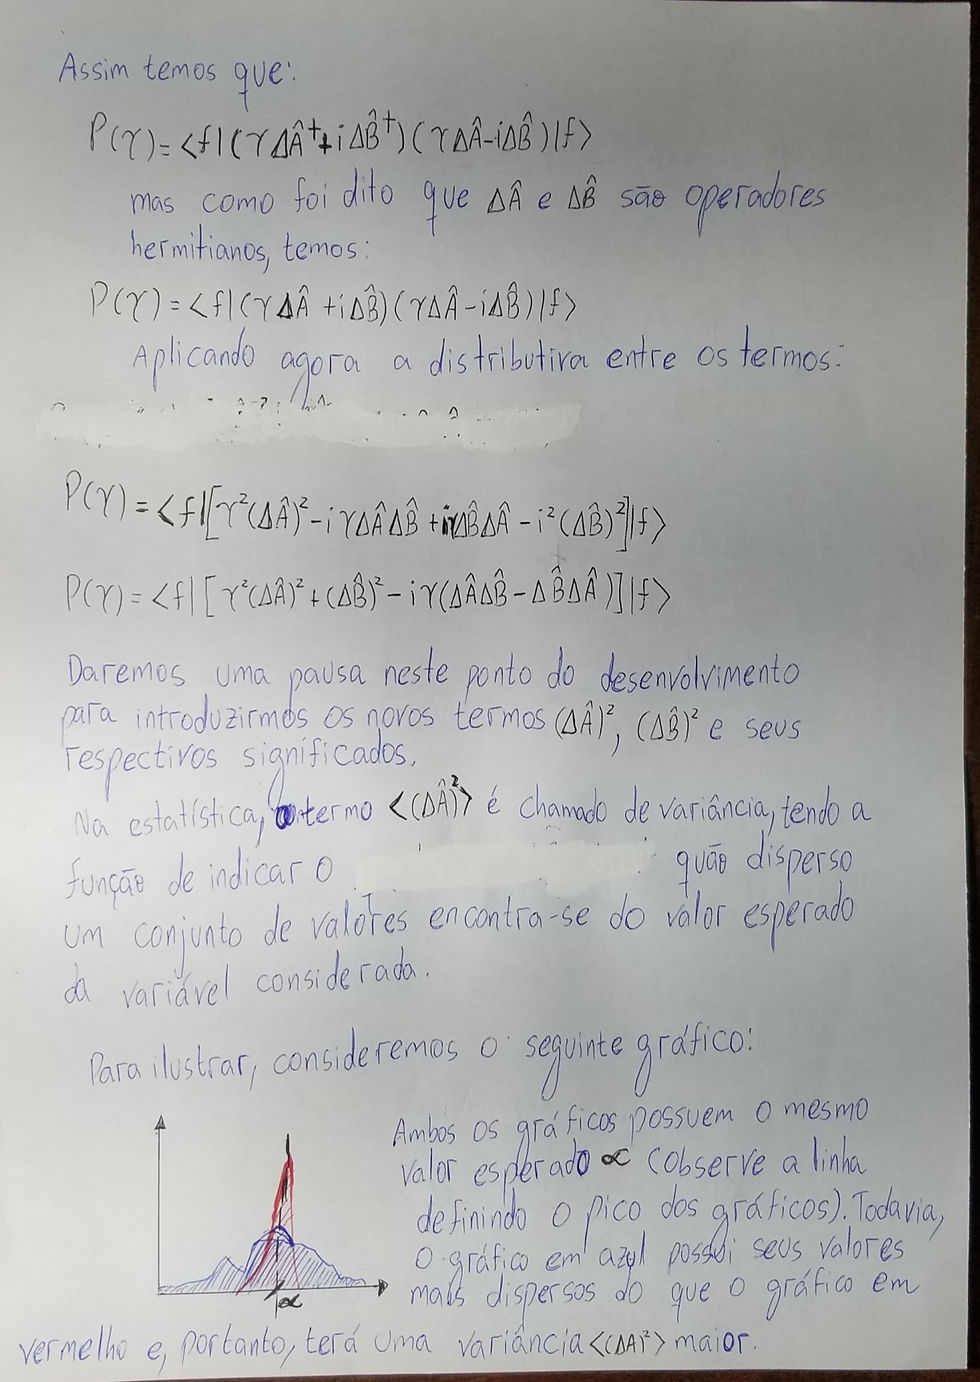 Assim temos que:
P(γ)=<f|(γΔÂ†+iΔB̂†)(γΔÂ-iΔB̂)|f>
mas como foi dito que ΔÂ e ΔB̂ são operadores
hermitianos, temos:
P(γ)=<f|(γΔÂ+iΔB̂)(γΔÂ-iΔB̂)|f>
Aplicando agora a distributiva entre os termos:
P(γ)=<f|[γ²(ΔÂ)²-iγΔÂΔB̂+iγΔB̂ΔÂ-i²(ΔB̂)²]|f>
P(γ)=<f|[γ²(ΔÂ)²+(ΔB̂)²-iγ(ΔÂΔB̂-ΔB̂ΔÂ)]|f>
Daremos uma pausa neste ponto do desenvolvimento
para introduzirmos os novos termos (ΔÂ)², (ΔB̂)² e seus
respectivos significados.
Na estatística, o termo <(ΔÂ)²> é chamado de variância, tendo a
função de indicar o quão disperso
um conjunto de valores encontra-se do valor esperado
da variável considerada.
Para ilustrar, consideremos o seguinte gráfico:
Ambos os gráficos possuem o mesmo
valor esperado α (observe a linha
definindo o pico dos gráficos). Todavia,
o gráfico em azul possui seus valores
mais dispersos do que o gráfico em
α
vermelho e, portanto, terá uma variância <(ΔA²> maior.